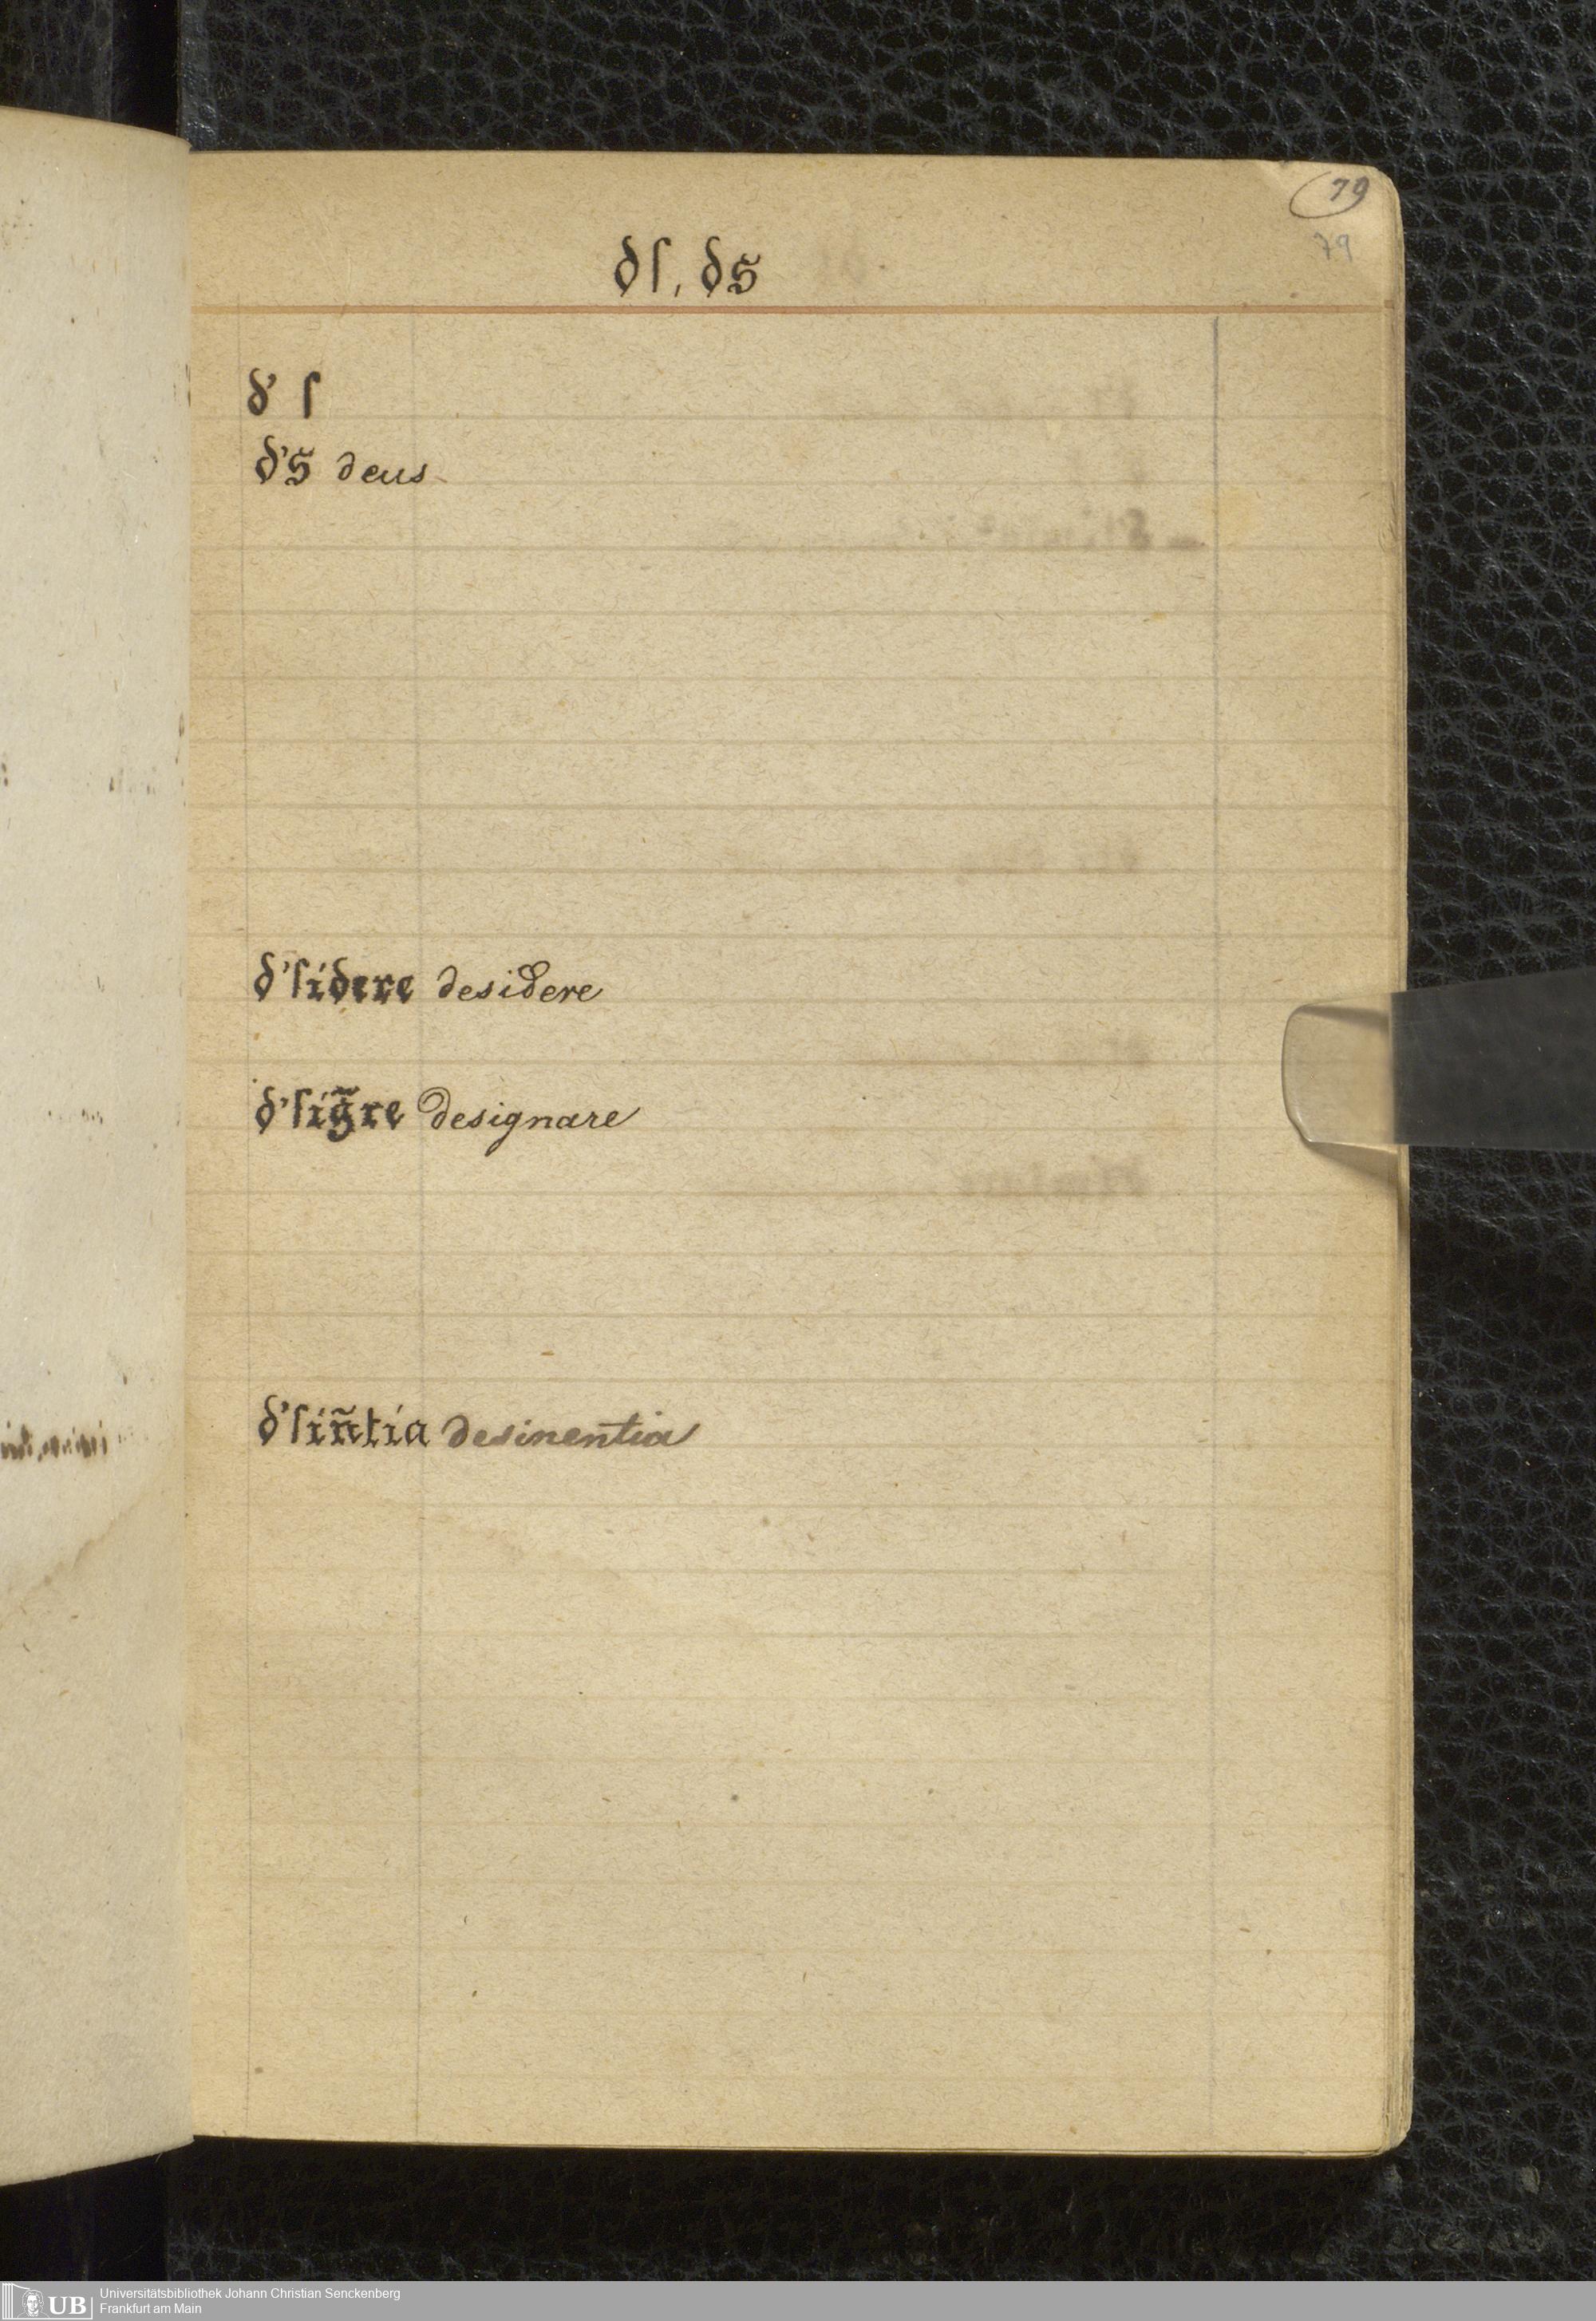 79
79
dſ, ds
d' ſ
d's deus
d'ſidere desidere
d'ſig̃re designare
d'ſiñtia desinentia
UB Universitätsbibliothek Johann Christian Senckenberg
Frankfurt am Main